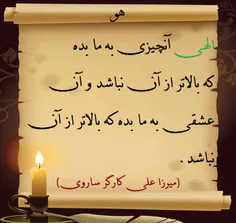 هو
الهی آنچیزی به ما بده
که بالاتر از آن نباشد و آن
عشقی به ما بده که بالاتر از آن
نباشد .
(میرزا علی کارگر ساروی)